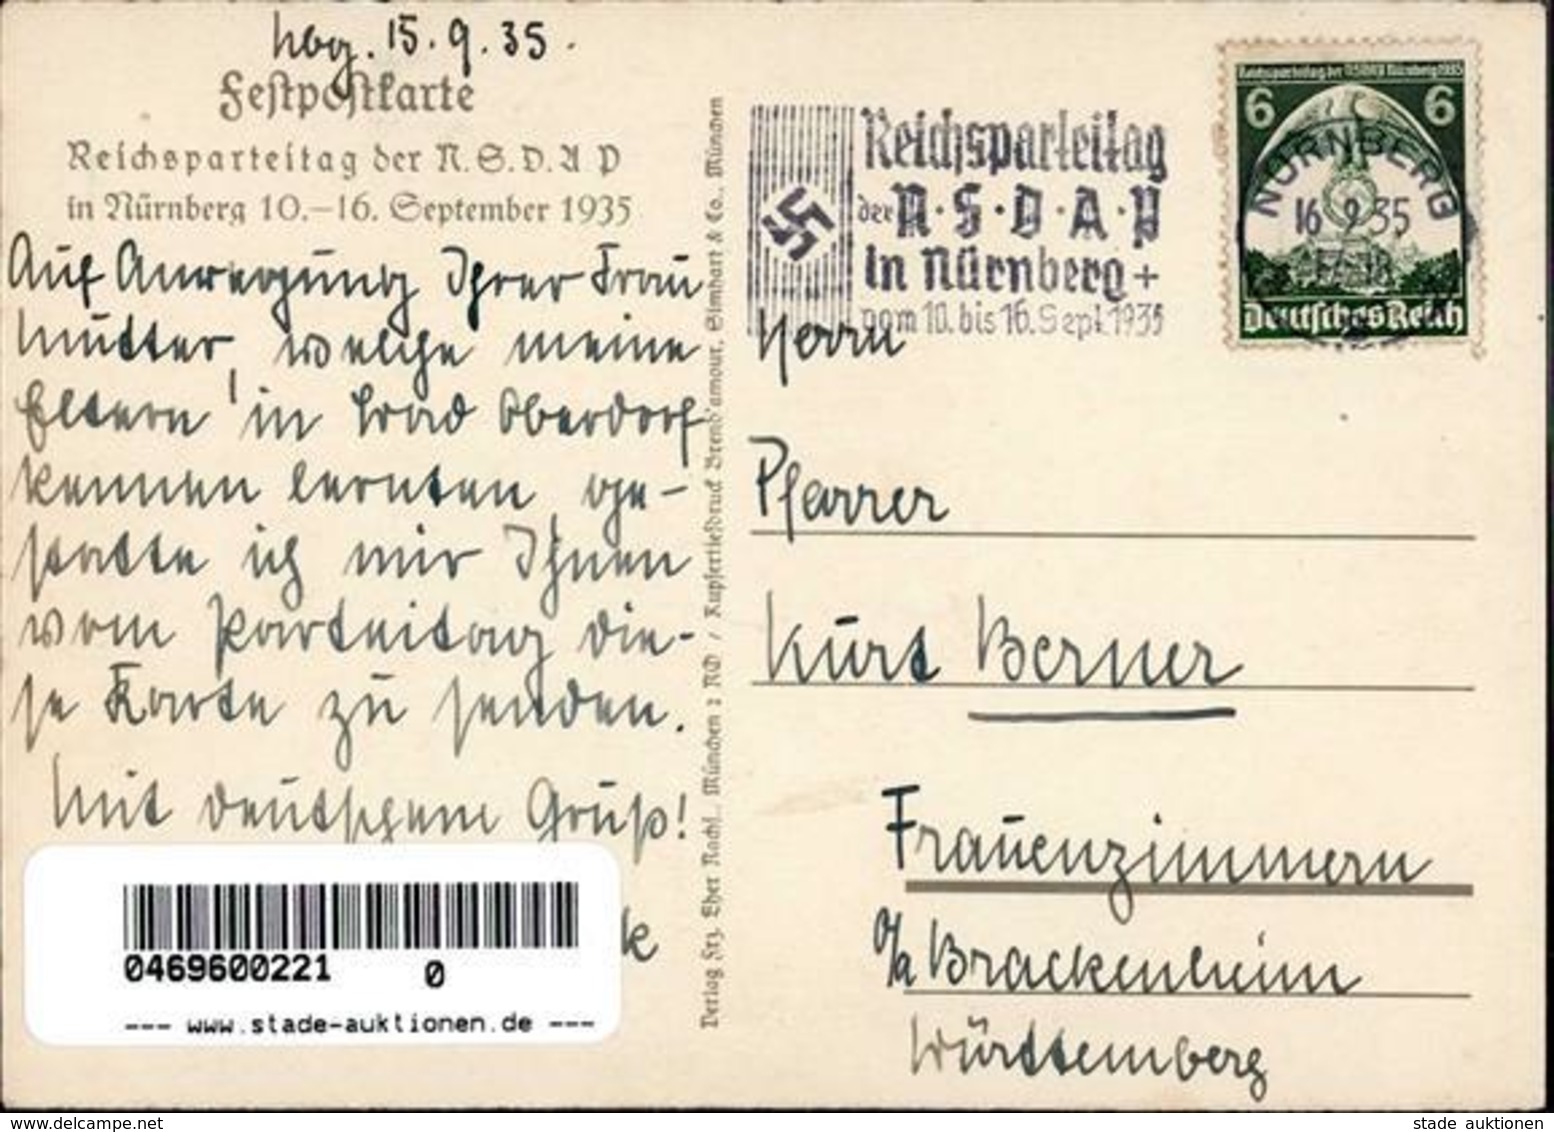 Nbg. 15.9.35.
Festpostkarte
Reichsparteitag der N.S.D.A P
in Nürnberg 10.–16. September 1935
Auf Anregung Ihrer Frau
Mutter, welche meine
Eltern in Bad Oberdorf
kennen lernten, ge-
statte ich mir Ihnen
vom Parteitag die-
se Karte zu senden.
Mit deutschem Gruß!
k
0469600221 0
--- www.stade-auktionen.de ---
Verlag Frz. Eher Nachf., München 2 NO / Kupfertiefdruck Brend'amour, Simhart & Co., München
Reichsparteitag
der N·S·D·A·P
in Nürnberg +
vom 10. bis 16. Sept. 1935
Reichsparteitag der NSDAP Nürnberg 1935
6 6
NÜRNBERG
16 9 35
Deutsches Reich
Herrn
Pfarrer
Kurt Berner
Frauenzimmern
o/a Brackenheim
Württemberg
stade auktionen
www.delcampe.net